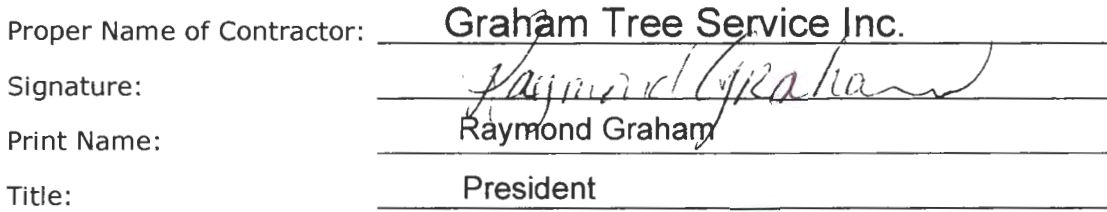 Proper Name of Contractor: Graham Tree Service Inc.
Signature: Raymond Graham
Print Name: Raymond Graham
Title: President